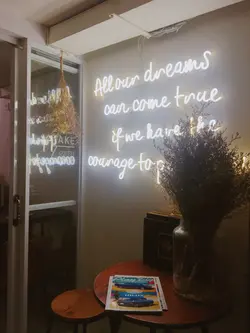 All our dreams
can come true
if we have the
courage to p
TAKE